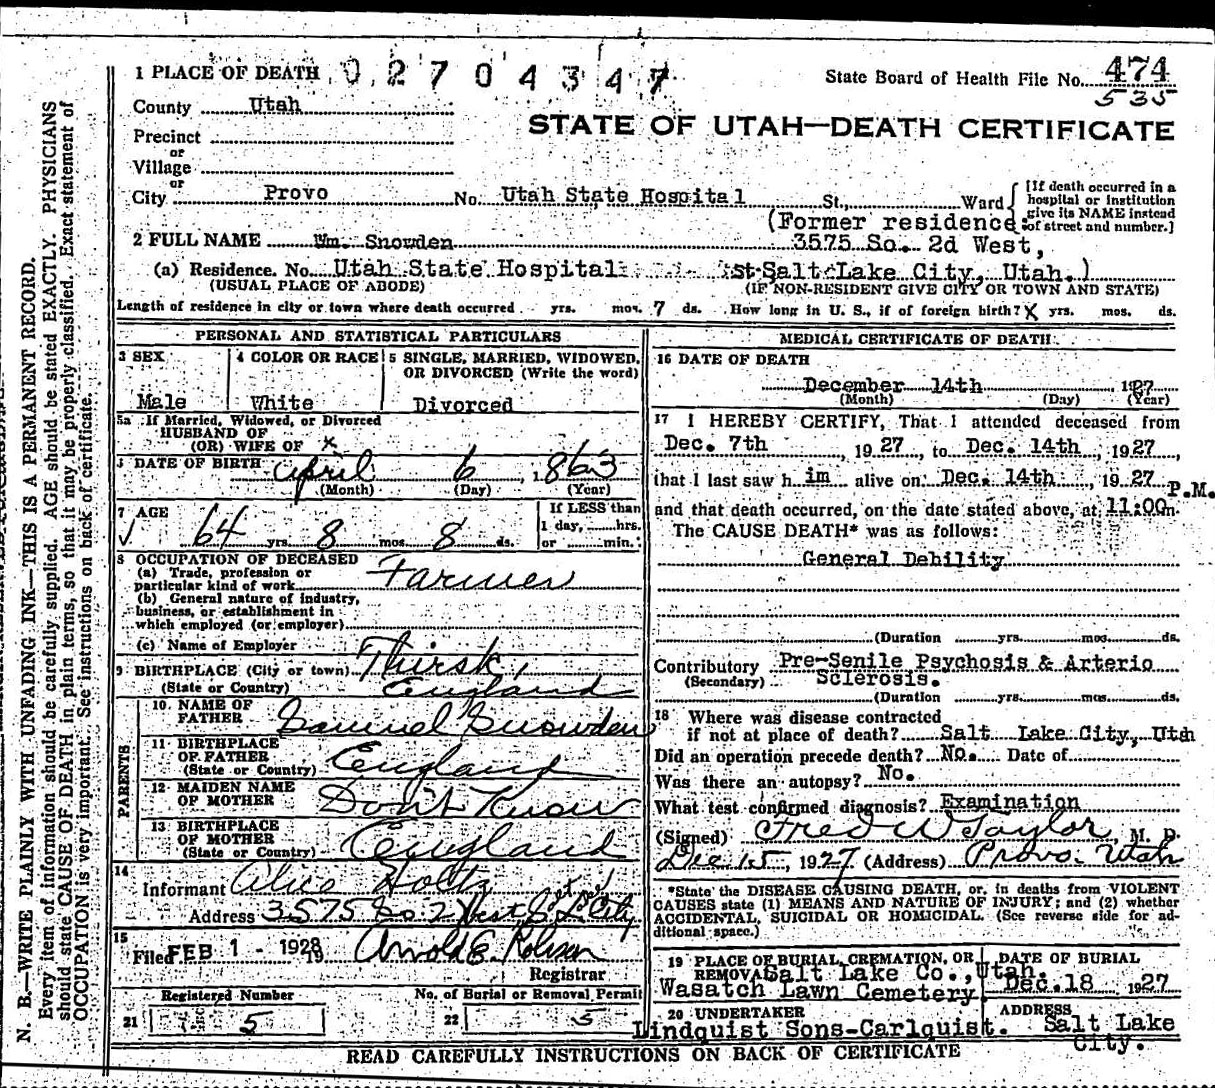 1 PLACE OF DEATH 02704347
State Board of Health File No. 474
535
County Utah
STATE OF UTAH—DEATH CERTIFICATE
Precinct
or
Village
or
City Provo No. Utah State Hospital St., Ward
[If death occurred in a
hospital or institution
give its NAME instead
of street and number.]
(Former residence:
2 FULL NAME Wm. Snowden 3575 So. 2d West,
(a) Residence. No. Utah State Hospital St. Salt Lake City, Utah.)
(USUAL PLACE OF ABODE) (IF NON-RESIDENT GIVE CITY OR TOWN AND STATE)
Length of residence in city or town where death occurred yrs. mos. 7 ds. How long in U. S., if of foreign birth? X yrs. mos. ds.
PERSONAL AND STATISTICAL PARTICULARS
3 SEX
Male
4 COLOR OR RACE
White
5 SINGLE, MARRIED, WIDOWED,
OR DIVORCED (Write the word)
Divorced
5a If Married, Widowed, or Divorced
HUSBAND OF
(OR) WIFE OF X
DATE OF BIRTH April 6, 1863
(Month) (Day) (Year)
7 AGE
64 yrs. 8 mos. 8 ds.
If LESS than
1 day, hrs.
or min.
8 OCCUPATION OF DECEASED
(a) Trade, profession or
particular kind of work Farmer
(b) General nature of industry,
business, or establishment in
which employed (or employer)
(c) Name of Employer
9 BIRTHPLACE (City or town) Thirsk,
(State or Country) England
PARENTS
10 NAME OF
FATHER Samuel Snowden
11 BIRTHPLACE
OF FATHER
(State or Country) England
12 MAIDEN NAME
OF MOTHER Don't Know
13 BIRTHPLACE
OF MOTHER
(State or Country) England
14
Informant Alice Holtz
Address 3575 So 2 West S. L. City
15
Filed FEB 1 - 1928 Arnold E. Robison
Registrar
Registered Number
21 5
No. of Burial or Removal Permit
22 5
MEDICAL CERTIFICATE OF DEATH
16 DATE OF DEATH
December 14th 1927
(Month) (Day) (Year)
17 I HEREBY CERTIFY, That I attended deceased from
Dec. 7th, 1927, to Dec. 14th, 1927,
that I last saw him alive on Dec. 14th, 1927
P.M.
and that death occurred, on the date stated above, at 11:00m.
The CAUSE DEATH* was as follows:
General Debility
(Duration yrs. mos. ds.
Contributory Pre-Senile Psychosis & Arterio
(Secondary) Sclerosis.
(Duration yrs. mos. ds.
18 Where was disease contracted
if not at place of death? Salt Lake City, Utah
Did an operation precede death? No. Date of
Was there an autopsy? No.
What test confirmed diagnosis? Examination
(Signed) Fred W Taylor, M. D.
Dec 15, 1927 (Address) Provo. Utah
*State the DISEASE CAUSING DEATH, or, in deaths from VIOLENT
CAUSES state (1) MEANS AND NATURE OF INJURY; and (2) whether
ACCIDENTAL, SUICIDAL OR HOMICIDAL. (See reverse side for ad-
ditional space.)
19 PLACE OF BURIAL, CREMATION, OR
REMOVAL Salt Lake Co., Utah.
Wasatch Lawn Cemetery
DATE OF BURIAL
Dec. 18 1927
20 UNDERTAKER
Lindquist Sons-Carlquist.
ADDRESS
Salt Lake
City.
READ CAREFULLY INSTRUCTIONS ON BACK OF CERTIFICATE
N. B.—WRITE PLAINLY WITH UNFADING INK—THIS IS A PERMANENT RECORD.
Every item of information should be carefully supplied. AGE should be stated EXACTLY. PHYSICIANS
should state CAUSE OF DEATH in plain terms, so that it may be properly classified. Exact statement of
OCCUPATION is very important. See instructions on back of certificate.